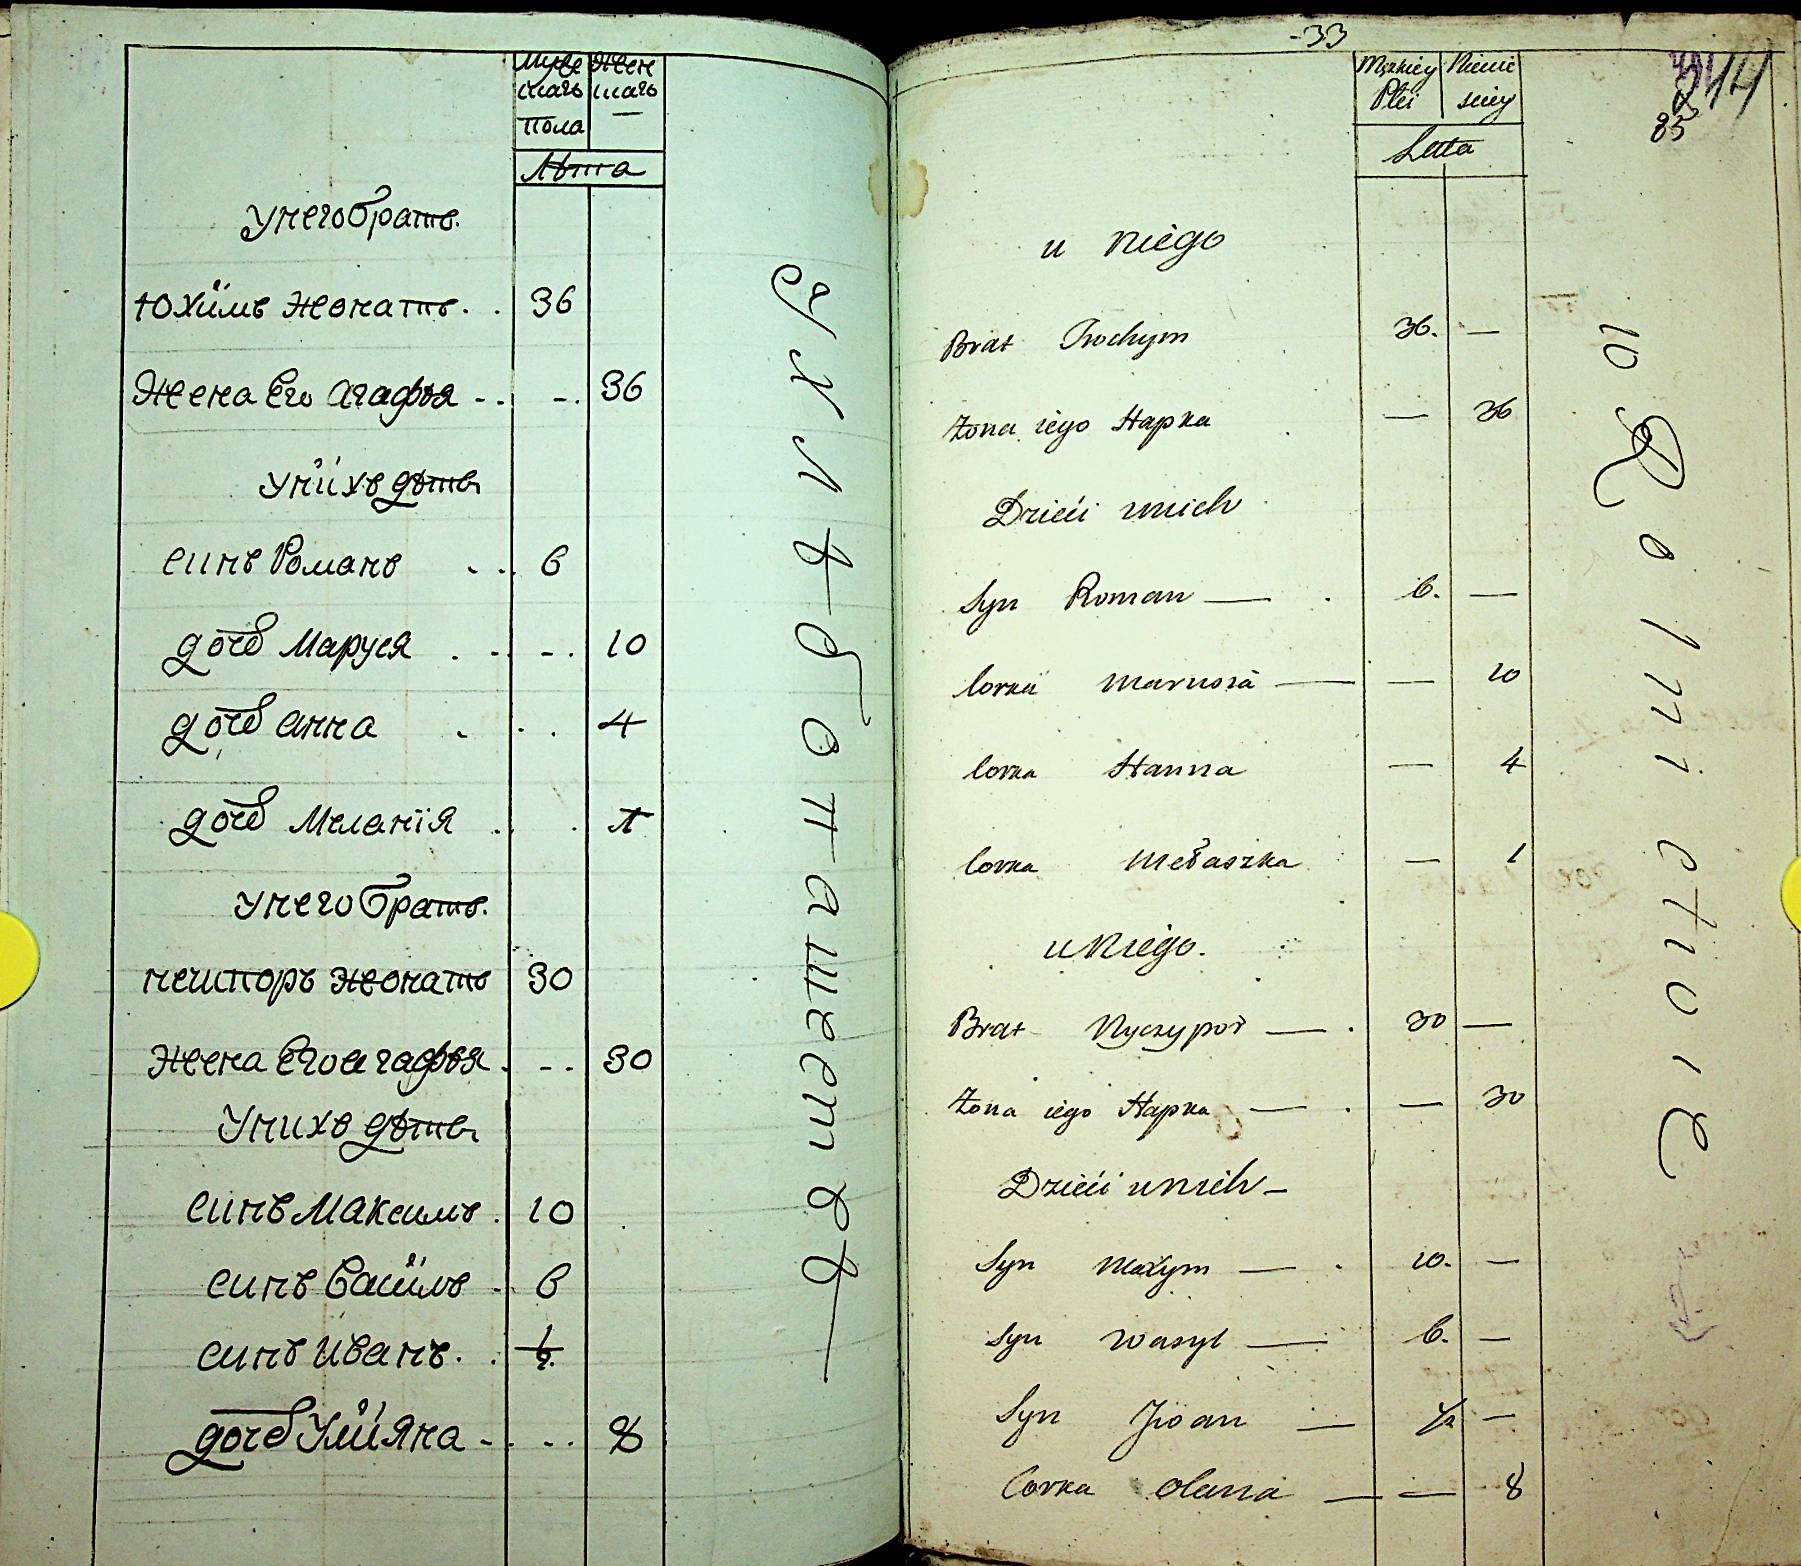 Муже Жен
скагѡ скагѡ
пола —
Лѣта
Унего братъ.
Юхимъ Жонатъ. . 36
Жена Его Агафѣя - - . - . 36
Унихъ дѣти
синъ Романъ . . . 6
дочь Маруся . - - . 10
дочь Анна . . . 4
дочь Меланія . . 1
Унего братъ.
нечипоръ жонатъ 30
жена Его агафѣя . - - . 30
Унихъ дѣти
синъ Максимъ . 10
синъ Василь . 6
синъ Иванъ . . ½.
дочь Улияна - . - . . 8
-33
Męzkiey Niewie
Płci sciey
Latta
u niego
Brat Jwchym 36. —
Żona iego Hapka — 36
Dzieći unich
Syn Roman — . 6. —
Corka Marusia — — 10
Corka Hanna — 4
Corka Mełaszka — 1
u Niego.
Brat Nyczypor — . 30 —
Żona iego Hapka — . — 30
Dzieći unich —
Syn Maxym — . 10. —
Syn Wasyl — 6. —
Syn Jwan — ½ —
Corka Olana — — 8
214
85
10 Rolnictwie